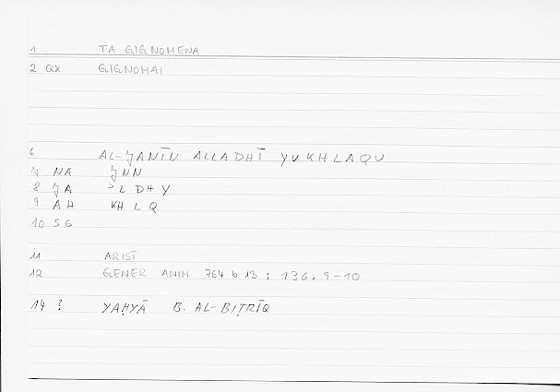 1 TA GIGNOMENA
2 QX GIGNOMAI
6 AL-JANĪN ALLADHĪ YUKHLAQU
7 NA JNN
8 JA ʾLDHY
9 AH KHLQ
10 SG
11 ARIST
12 GENER ANIM 764 b 13 ; 136.9-10
14 ? YAḤYĀ B. AL-BIṬRĪQ